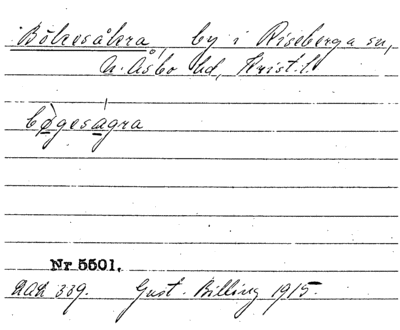 Bökesåkra, by i Riseberga sn,
N. Åsbo hd, Krist. l.
bøgesagra
Nr 5501.
DAL 339. Gust. Billing 1915.